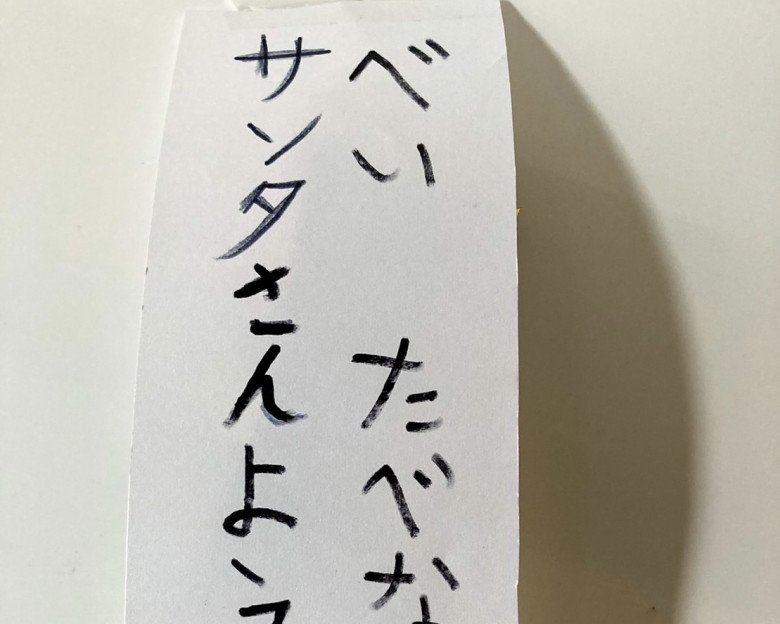 べい たべな
サンタさんよ